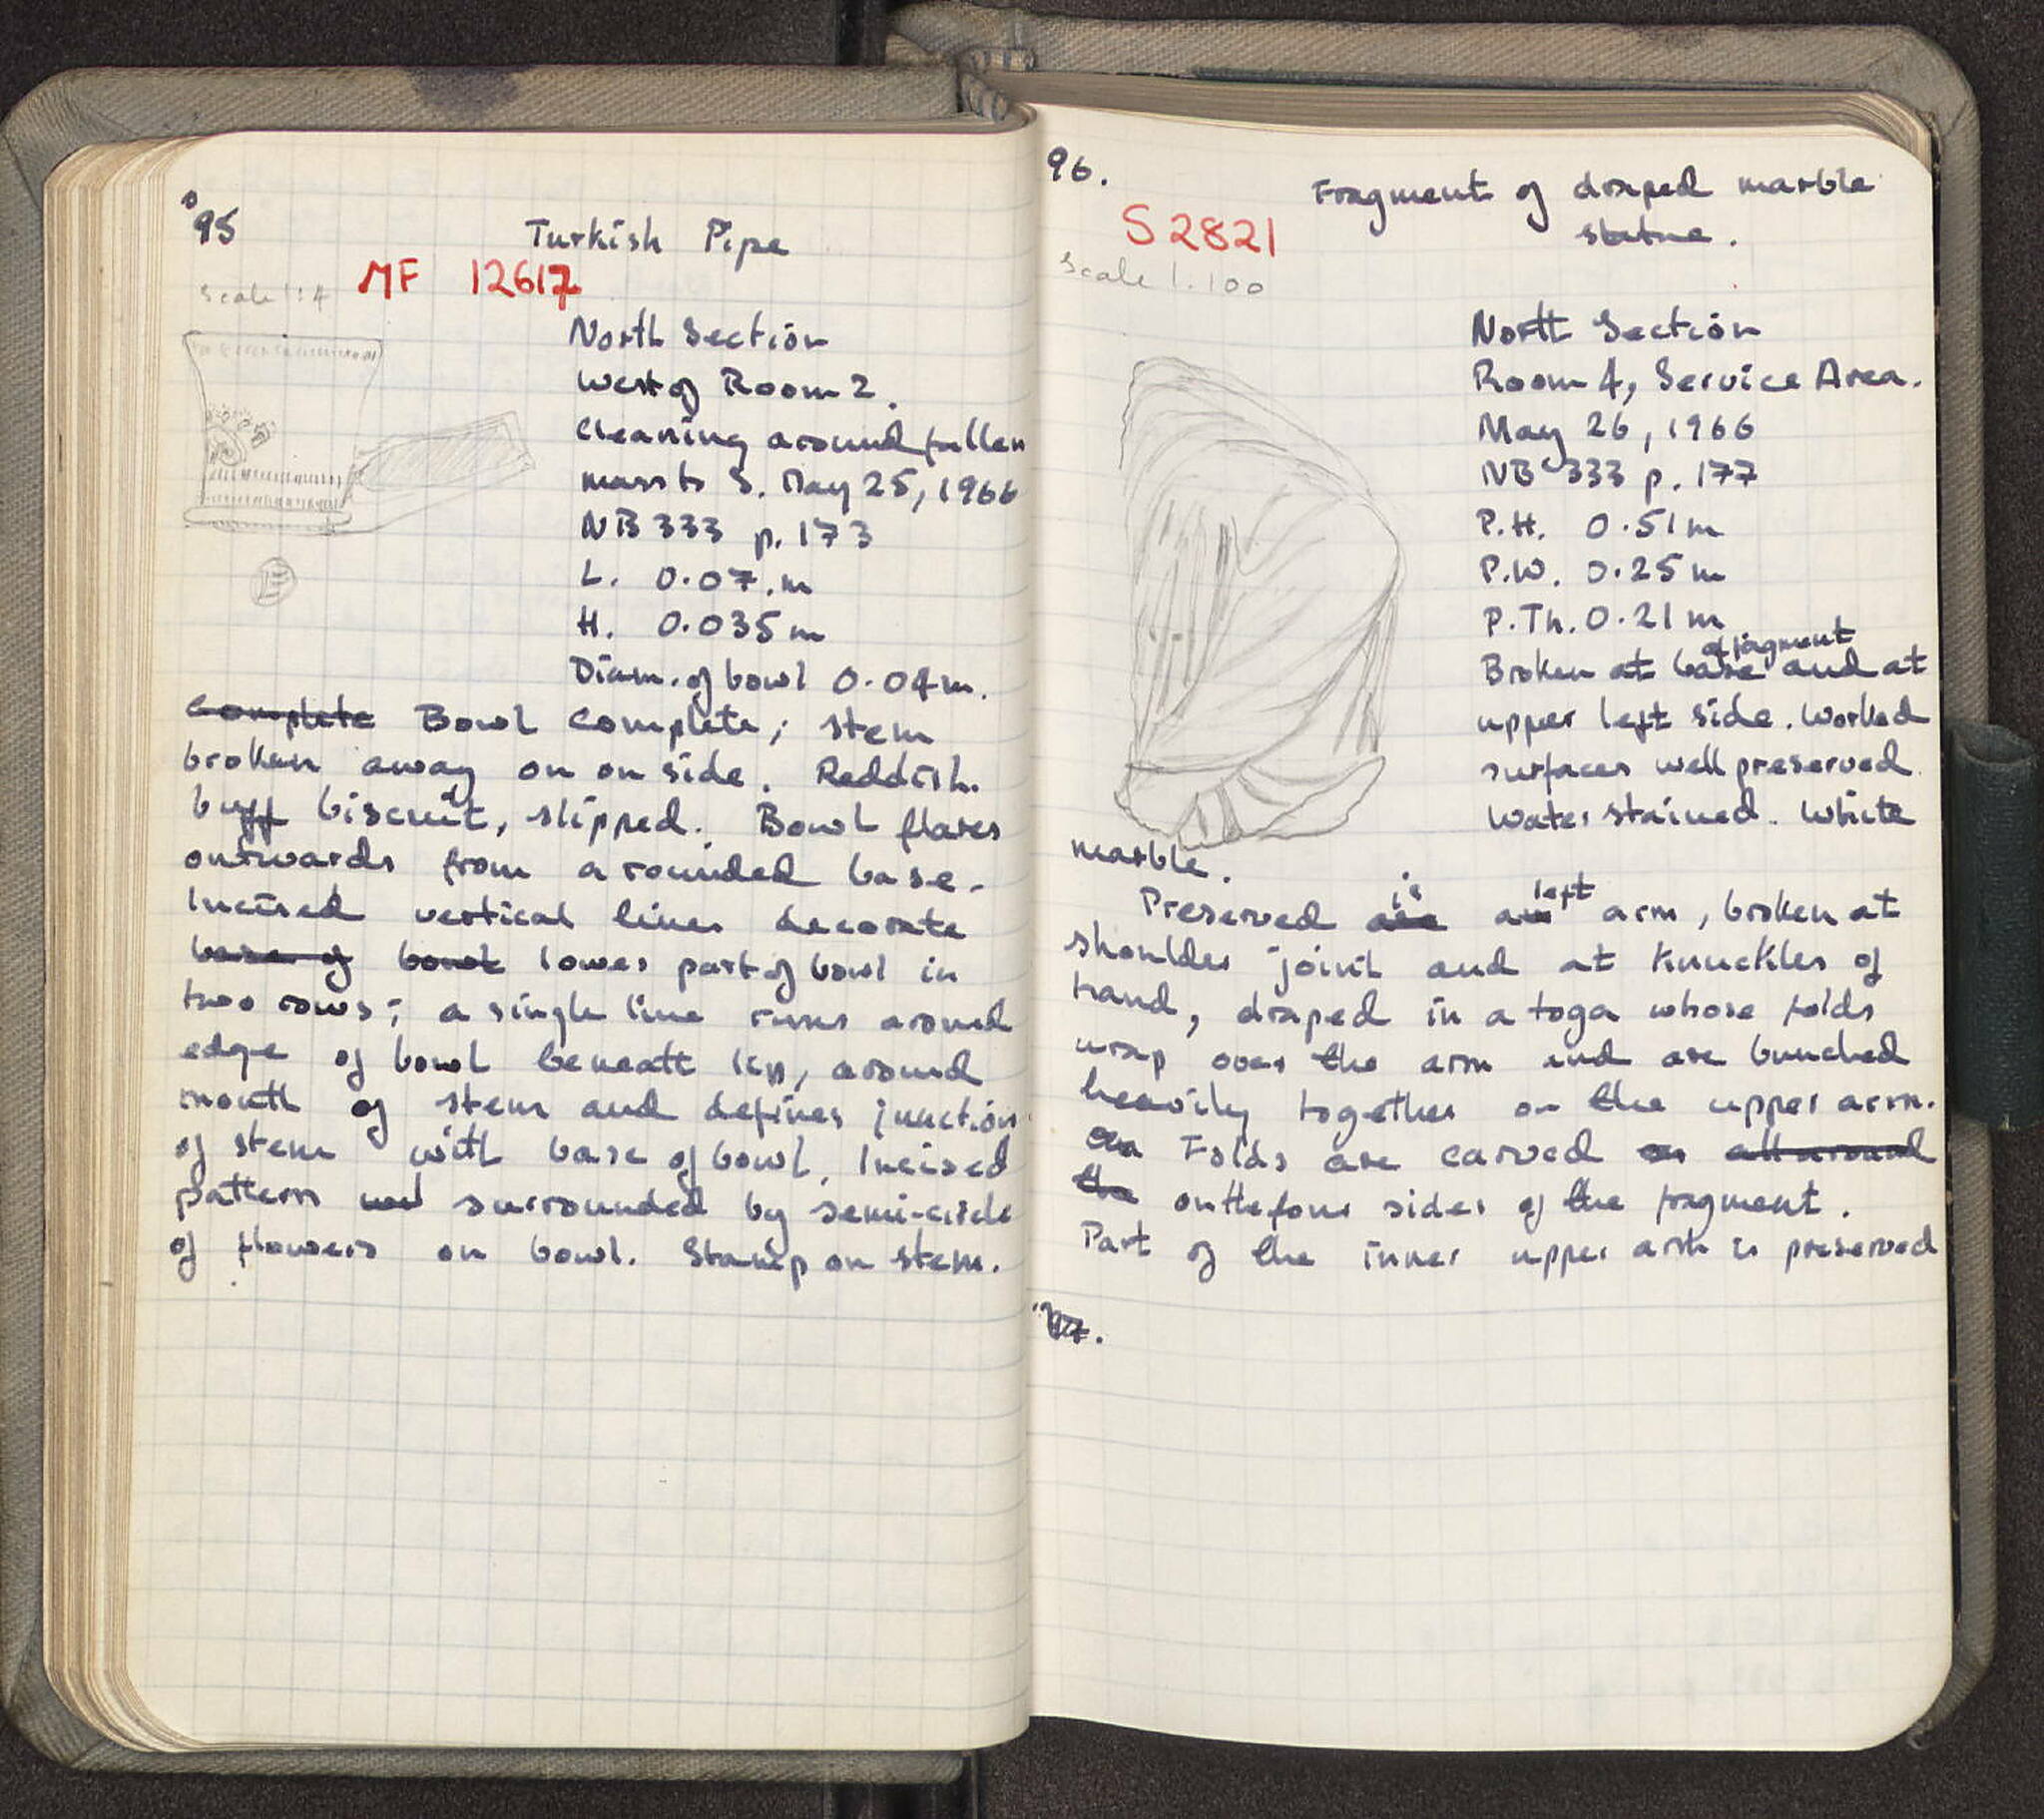 95
Turkish Pipe
MF 12617
Scale 1:4
North Section
West of Room 2.
Cleaning around fallen
mass to S. May 25, 1966
NB 333 p. 173
L. 0.07.m
H. 0.035m
Diam. of bowl 0.04m.
complete Bowl complete; stem
broken away on on side. Reddish.
buff biscuit, slipped. Bowl flares
outwards from a rounded base.
Incised vertical lines decorate
base of bowl lower part of bowl in
two rows; a single line runs around
edge of bowl beneath lip, around
mouth of stem and defines junction
of stem with base of bowl. Incised
pattern surrounded by semi-circle
of flowers on bowl. Stamp on stem.
96.
Fragment of draped marble
statue.
S 2821
Scale 1.100
North Section
Room 4, Service Area.
May 26, 1966
NB 333 p. 177
P.H. 0.51m
P.W. 0.25m
P.Th. 0.21m
of fragment
Broken at base and at
upper left side. Worked
surfaces well preserved.
Water stained. White
marble.
is left
Preserved are an arm, broken at
shoulder joint and at knuckles of
hand, draped in a toga whose folds
wrap over the arm and are bunched
heavily together on the upper arm.
Folds are carved on all around
the on the four sides of the fragment.
Part of the inner upper arm is preserved
97.